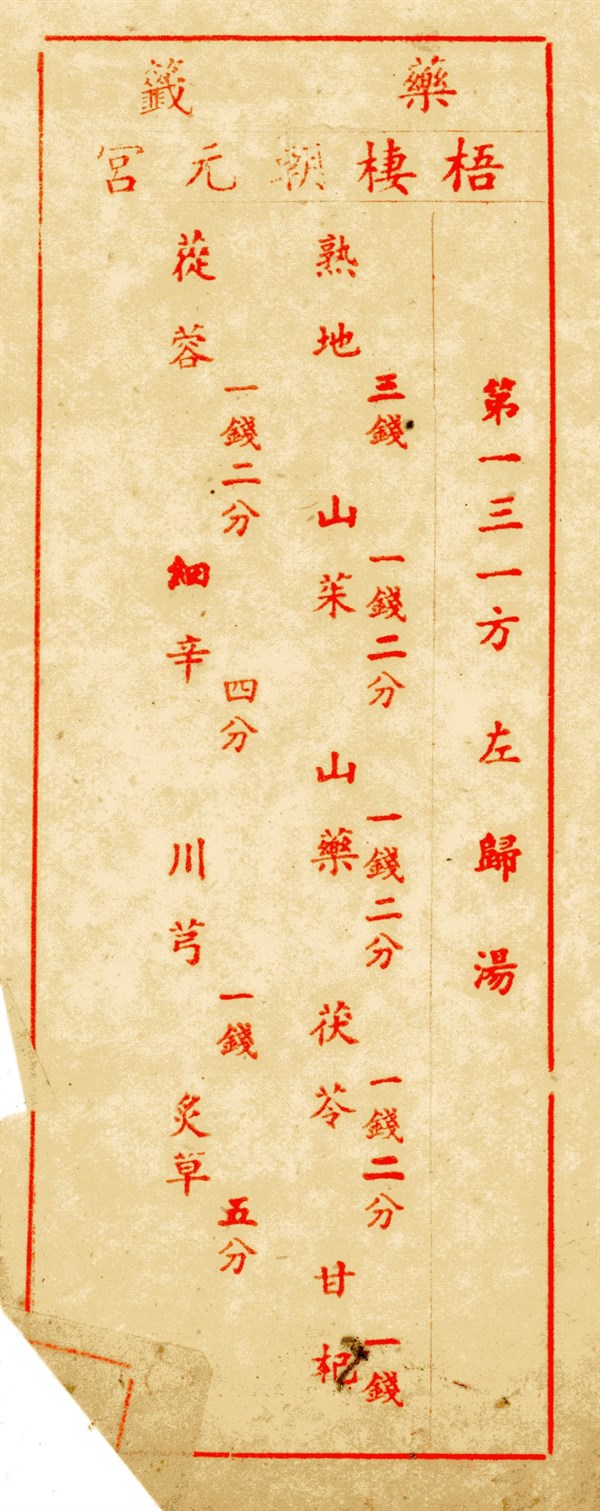 藥籤
梧棲朝元宮
第一三一方 左歸湯
熟地 三錢 山茱 一錢二分 山藥 一錢二分 茯苓 一錢二分 甘杞 一錢
蓯蓉 一錢二分 細辛 四分 川芎 一錢 炙草 五分